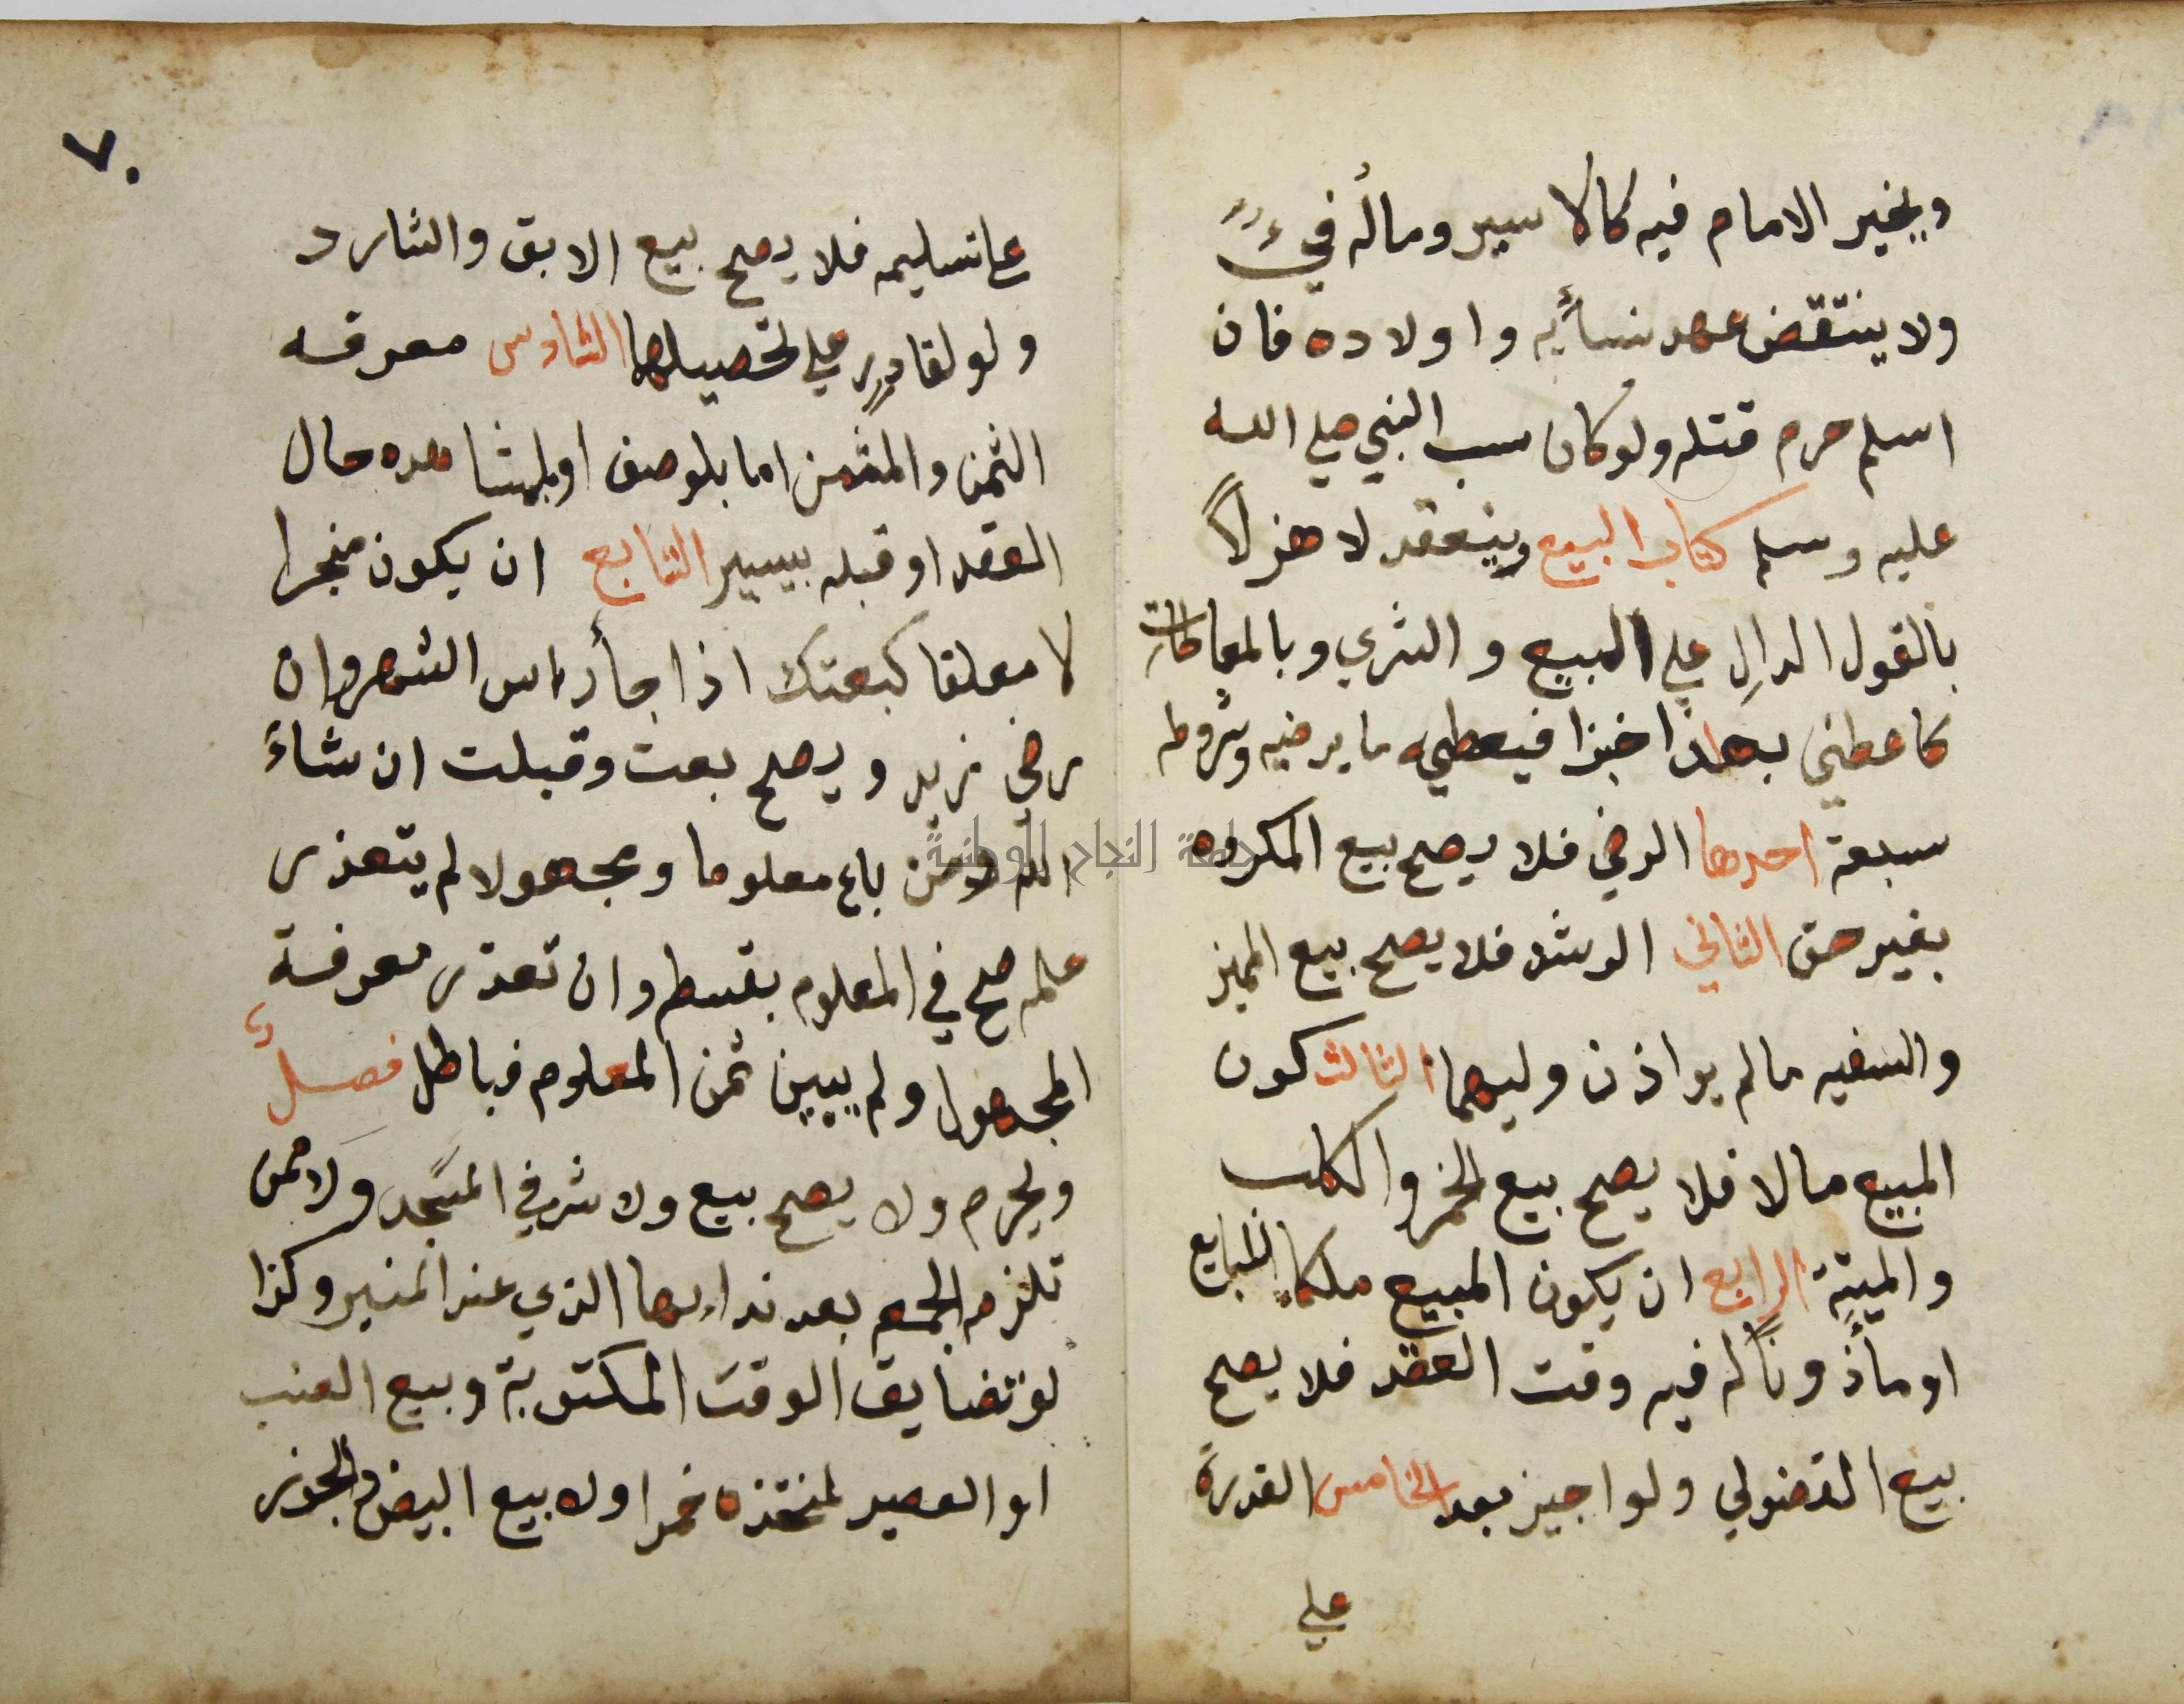 ويخير الامام فيه كالاسير وماله فيء
ولا ينتقض عهد نسأيه واولاده فان
اسلم حرم قتله ولو كان سب النبي صلي الله
عليه وسلم كتاب البيع وينعقد لا هزلاً
بالقول الدالِ علي البيع والشري وبالمعاطات
كاعطني بهاذا خبزا فيعطيه ما يرضيه وشروطه
سبعة احدها الرضي فلا يصح بيع المكروه
بغير حق الثاني الرشد فلا يصح بيع المميز
والسفيه مالم يواذن وليهما الثالث كون
المبيع مالا فلا يصح بيع الخمر والكلب
والميتة الرابع ان يكون المبيع ملكا للبايع
او مأذوناً له فيه وقت العقد فلا يصح
بيع الفضولي ولو اجيز بعد الخامس القدرة
علي
٧٠
علي تسليمه فلا يصح بيع الابق والشارد
ولو لقادرٍ علي تحصيلهما السادس معرفه
الثمن والمثمن اما بلوصف او بلمشاهده حال
العقد او قبله بيسير السابع ان يكون منجزا
لا معلقا كبعتك اذا جأ راس الشهر وان
رضي زيد ويصح بعت وقبلت ان شاء
الله ومن باع معلوما ومجهولا لم يتعذر
علمه صح في المعلوم بقسطه وان تعذر معرفة
المجهول ولم يبين ثمن المعلوم فباطل فصلٌ
ويحرم ولا يصح بيع ولا شري في المسجد ولا ممن
تلزمه الجمعه بعد نداءها الذي عند المنبر وكذا
لو تضايق الوقت المكتوبة وبيع العنب
او العصير لمتخذه خمرا ولا بيع البيض والجوز
جامعة النجاح الوطنية